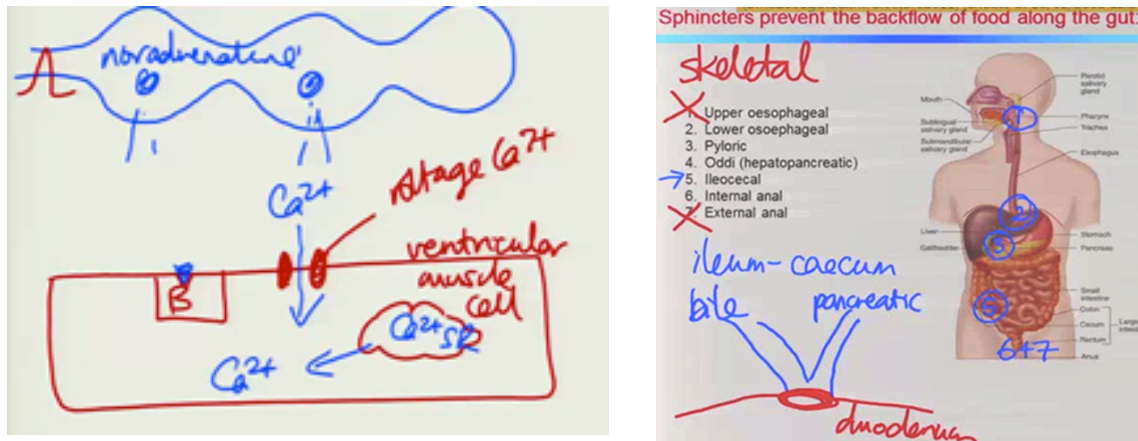 noradrenaline
Ca2+
voltage Ca2+
ventricular
muscle
cell
B
Ca2+
SR
Ca2+
Sphincters prevent the backflow of food along the gut.
skeletal
1. Upper oesophageal
2. Lower osoephageal
3. Pyloric
4. Oddi (hepatopancreatic)
5. Ileocecal
6. Internal anal
7. External anal
ileum-caecum
bile
pancreatic
duodenum
Mouth
Sublingual
salivary gland
Submandibular
salivary gland
Parotid
salivary
gland
Pharynx
Trachea
Esophagus
Liver
Gallbladder
Stomach
Pancreas
Small
intestine
Colon
Cecum
Rectum
Anus
1
2
3
5
6+7